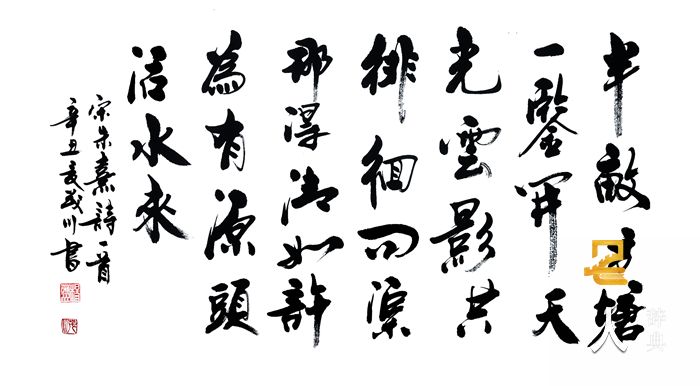 半畝方塘
一鑒開天
光雲影共
徘徊問渠
那得清如許
為有源頭
活水來
宋朱熹詩一首
辛丑成川書
人
辞典